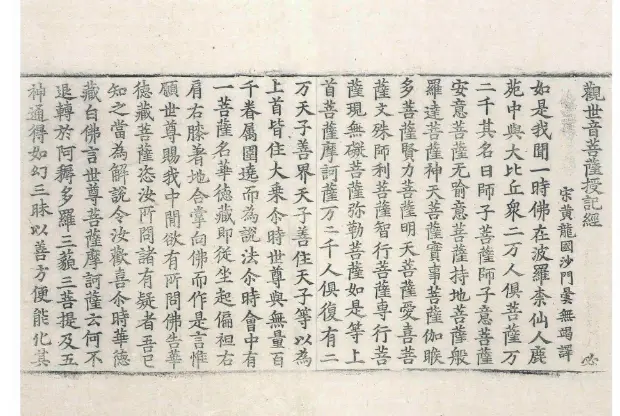 觀世音菩薩授記經
宋黃龍國沙門曇無竭譯
如是我聞一時佛在波羅柰仙人鹿
苑中與大比丘眾二萬人俱菩薩万
二千其名曰師子菩薩師子意菩薩
安意菩薩无喻意菩薩持地菩薩般
羅達菩薩神天菩薩實事菩薩伽睺
多菩薩賢力菩薩明天菩薩愛喜菩
薩文殊師利菩薩智行菩薩專行菩
薩現無礙菩薩弥勒菩薩如是等上
首菩薩摩訶薩万二千人俱復有二
万天子善界天子善住天子等以為
上首皆住大乘尒時世尊與無量百
千眷属圍遶而為說法尒時會中有
一菩薩名華德藏即從坐起偏袒右
肩右膝著地合掌向佛而作是言惟
願世尊賜我中閒欲有所問佛告華
德藏菩薩恣汝所問諸有疑者吾已
知之當為解說令汝歡喜尒時華德
藏白佛言世尊菩薩摩訶薩云何不
退轉於阿耨多羅三藐三菩提及五
神通得如幻三昧以善方便能化其